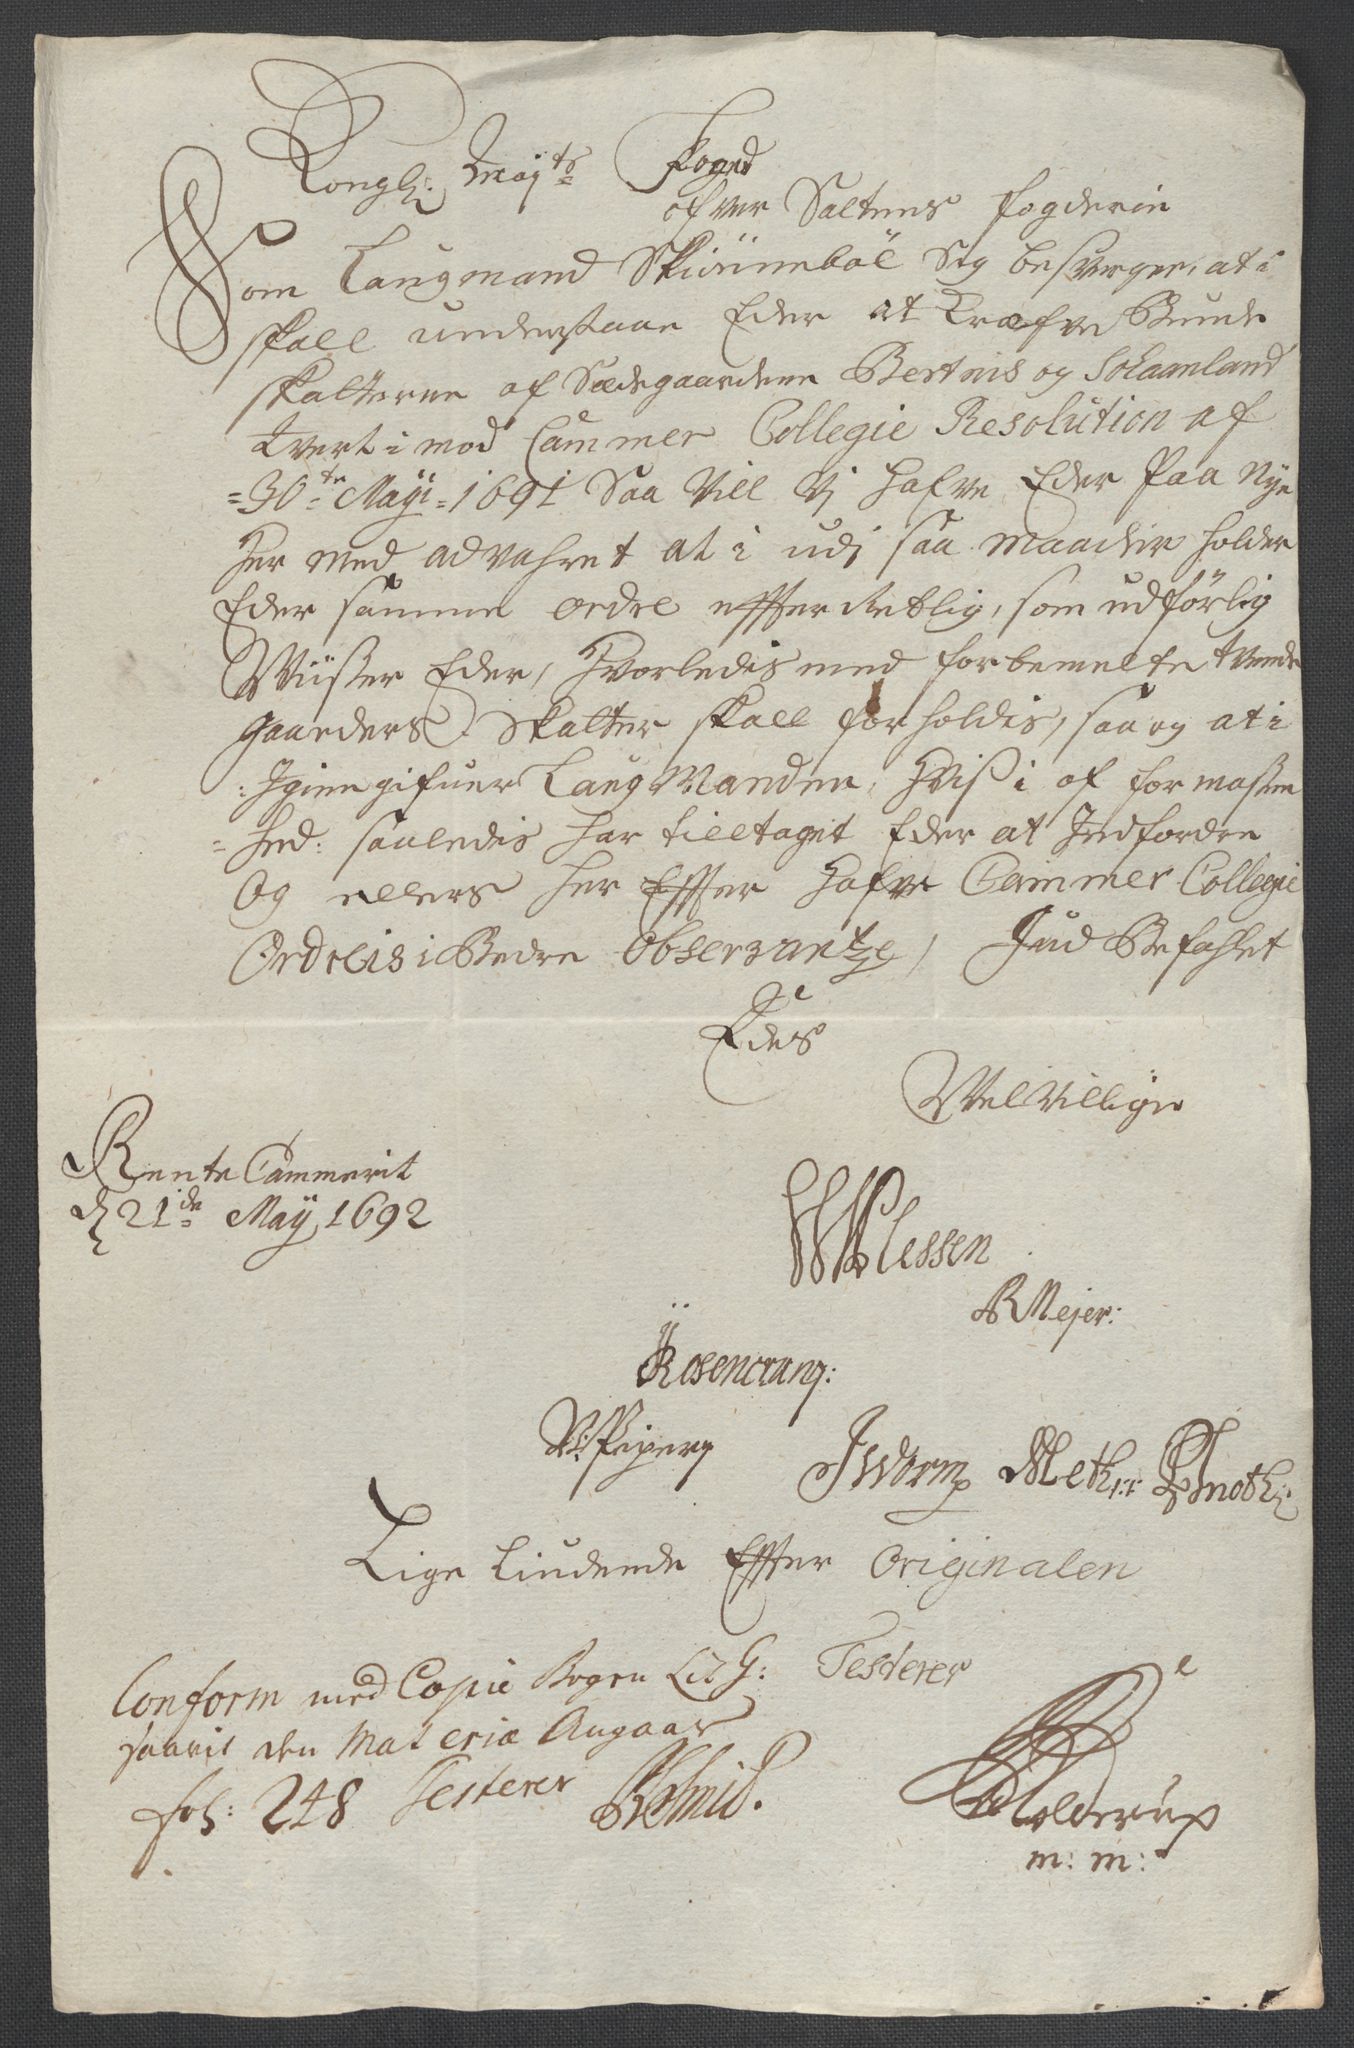 Kongl: Mayts Foged
ofver Saltens fogderie
Som Laugmand Skiønnebøl Sig besverger, at i
skall understaae Eder at Kræfve Bunde
skatterne af Sædegaardene Bertnis og Solaanland
tvert i mod Cammer Collegie Resolution af
=30te Maÿi=1691 Saa Vill Vj Hafve Eder Paa Nye
Her med advahret at i udj saa maader holder
Eder samme ordre effter Retlig, som udførlig
Wiißer Eder, Hvorledis med forbemelte tvende
gaarders Skatter skall forholdis, saa og at i
:Igien gifuer LaugManden, Hviß i af formasten
=hed: saaledis har tilltaget Eder at Indfordre
Og ellers her Effter Hafve Cammer Collegie
Ordreis i Bedre Observantze, Gud Befahlet
Edes
Welvillige
Rente Cammerit
d 21de Maÿ 1692
Plessen
R Mejer:
Rosencrantz:
W: Peipery
J Worm Meth: Knoth:
Lige Liudende Effter Originalen
Testerer
Conform med Copie Bogen Lit G:
saavit den Materie Angaar
fol: 248 Testerer Schmid.
Tolderup
m: m: